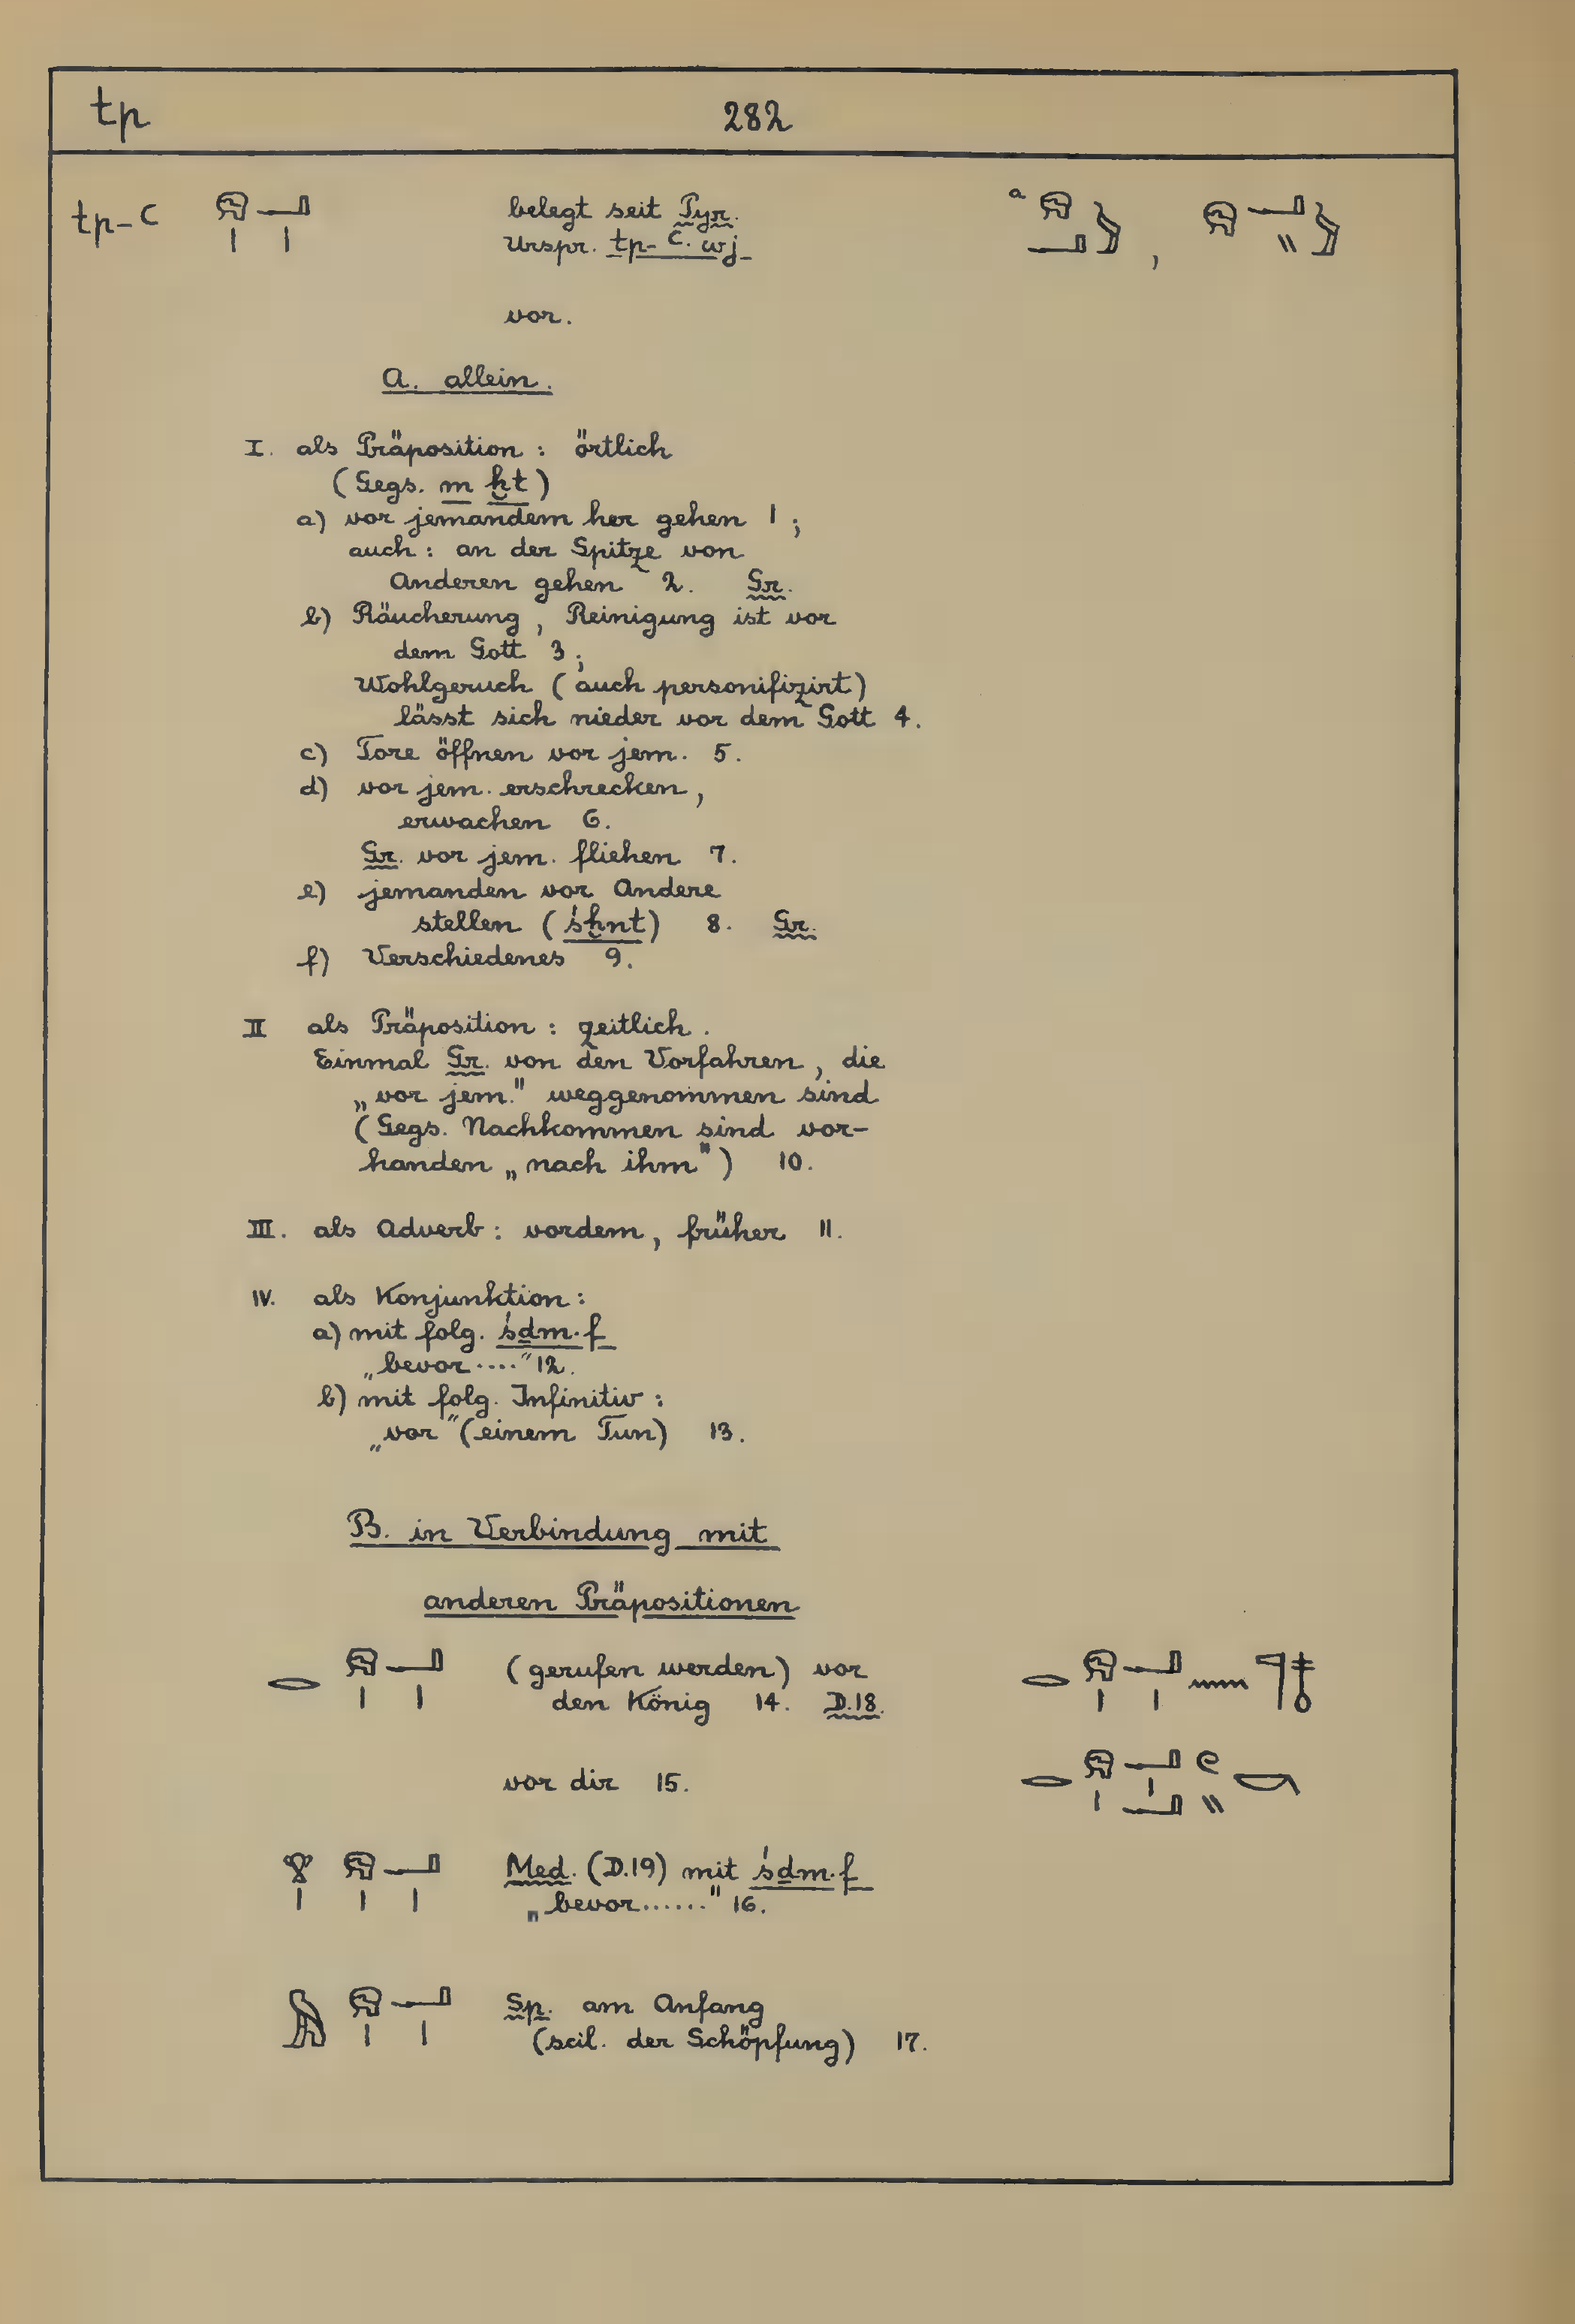 tp 282
tp-ꜥ 𓁶𓏤𓂝𓏤 belegt seit Pyr.
Urspr. tp-ꜥ.wj
vor.
A. allein.
I. als Präposition : örtlich
(Gegs. m ḫt)
a) vor jemandem her gehen 1 ;
auch : an der Spitze von
Anderen gehen 2. Gr.
b) Räucherung , Reinigung ist vor
dem Gott 3 ;
Wohlgeruch ( auch personifizirt)
lässt sich nieder vor dem Gott 4.
c) Tore öffnen vor jem. 5.
d) vor jem. erschrecken ,
erwachen 6.
Gr. vor jem. fliehen 7.
e) jemanden vor Andere
stellen (śḫnt) 8. Gr.
f) Verschiedenes 9.
II als Präposition : zeitlich .
Einmal Gr. von den Vorfahren , die
„vor jem." weggenommen sind
(Gegs. Nachkommen sind vor-
handen „nach ihm") 10.
III. als Adverb : vordem , früher 11.
IV. als Konjunktion :
a) mit folg. śḏm.f
„bevor ...." 12.
b) mit folg. Infinitiv :
„vor" (einem Tun) 13.
B. in Verbindung mit
anderen Präpositionen
𓂋𓁶𓏤𓂝𓏤 (gerufen werden) vor 𓂋𓁶𓏤𓂝𓏤𓈖𓊹𓄤
den König 14. D.18.
vor dir 15.
𓄣𓏤𓁶𓏤𓂝𓏤 Med. (D.19) mit śḏm.f
„bevor ......" 16.
𓅓𓁶𓏤𓂝𓏤 Sp. am Anfang
(scil. der Schöpfung) 17.